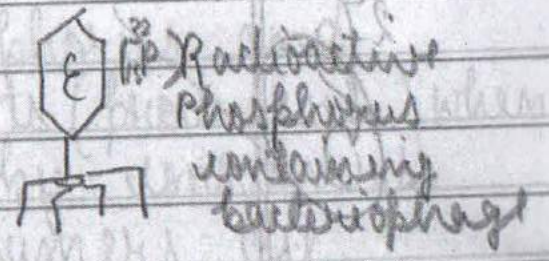 (³²P) Radioactive
Phosphorus
containing
bacteriophage